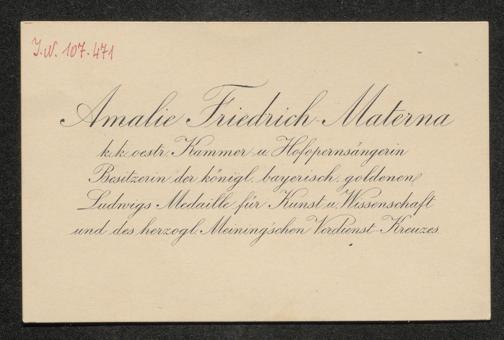 J.N. 107.471
Amalie Friedrich-Materna
k. k. oestr. Kammer u. Hofopernsängerin
Besitzerin der königl. bayerisch. goldenen
Ludwigs Medaille für Kunst u. Wissenschaft
und des herzogl. Meining'schen Verdienst-Kreuzes.